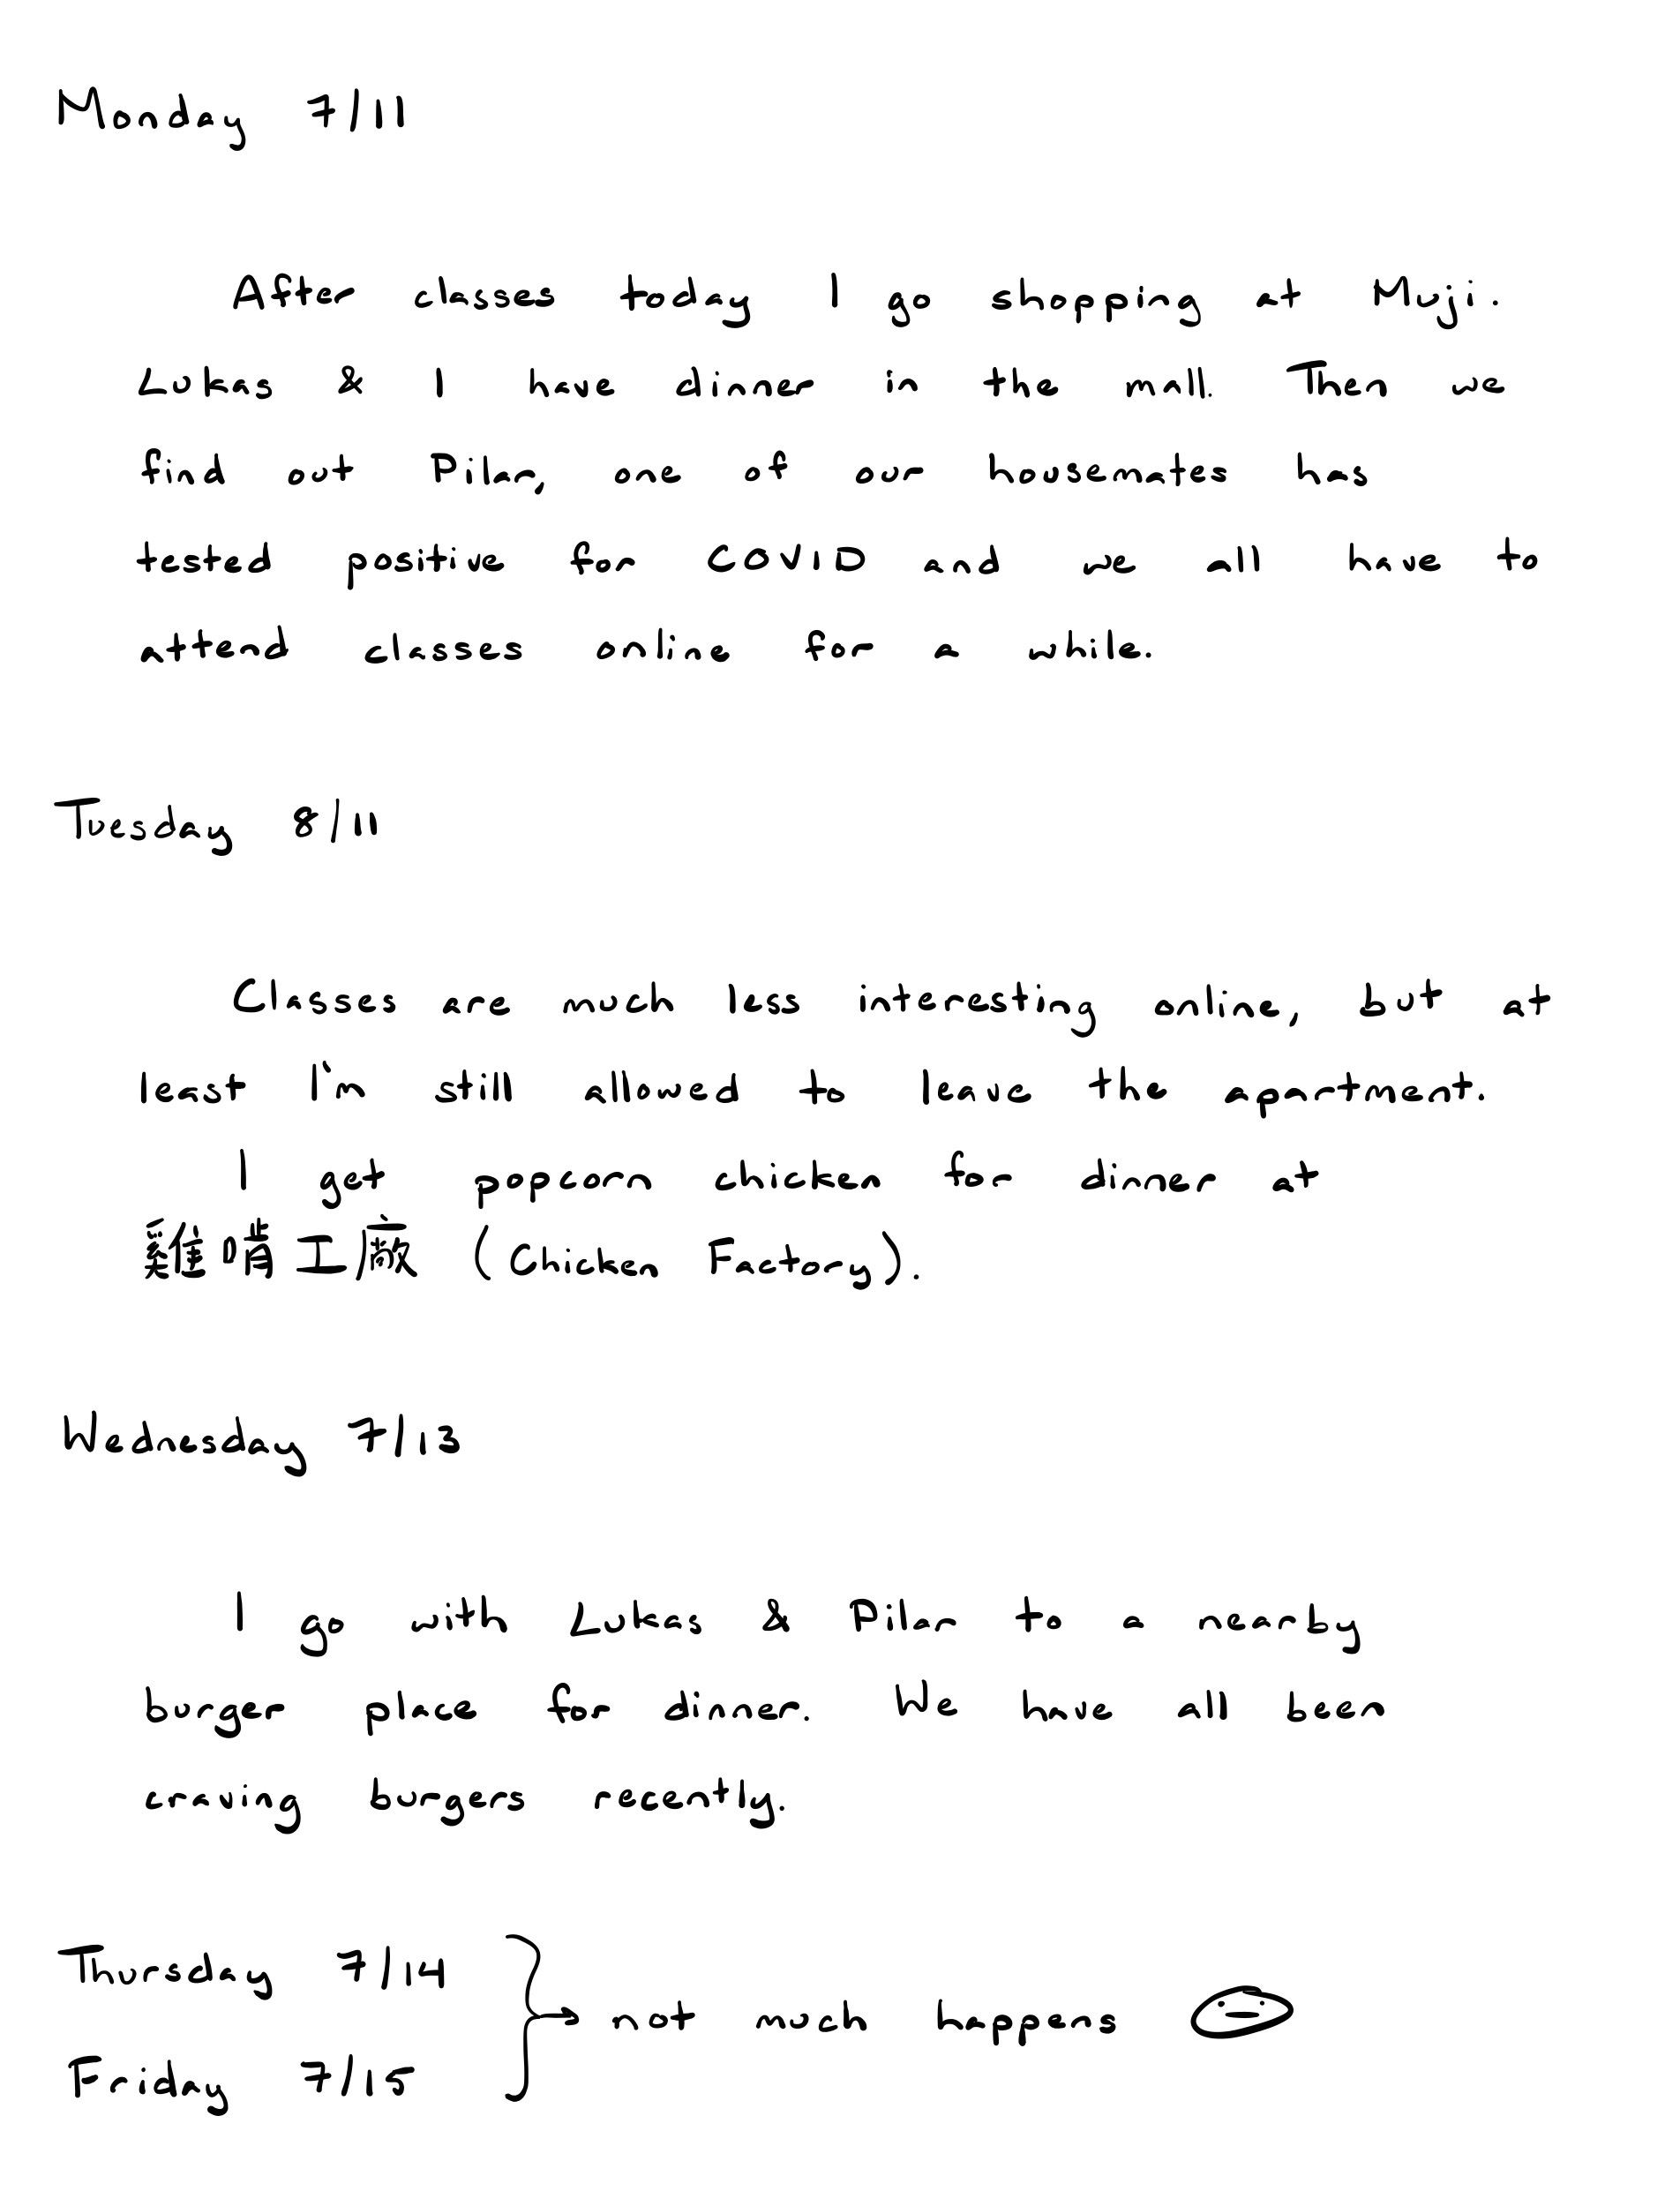 Monday 7/11
After classes today I go shopping at Muji.
Lukas & I have dinner in the mall. Then we
find out Pilar, one of our housemates has
tested positive for COVID and we all have to
attend classes online for a while.
Tuesday 8/11
Classes are much less interesting online, but at
least I'm still allowed to leave the apartment.
I get popcorn chicken for dinner at
雞啃工廠 (Chicken Factory).
Wednesday 7/13
I go with Lukas & Pilar to a nearby
burger place for dinner. We have all been
craving burgers recently.
Thursday 7/14
not much happens
Friday 7/15